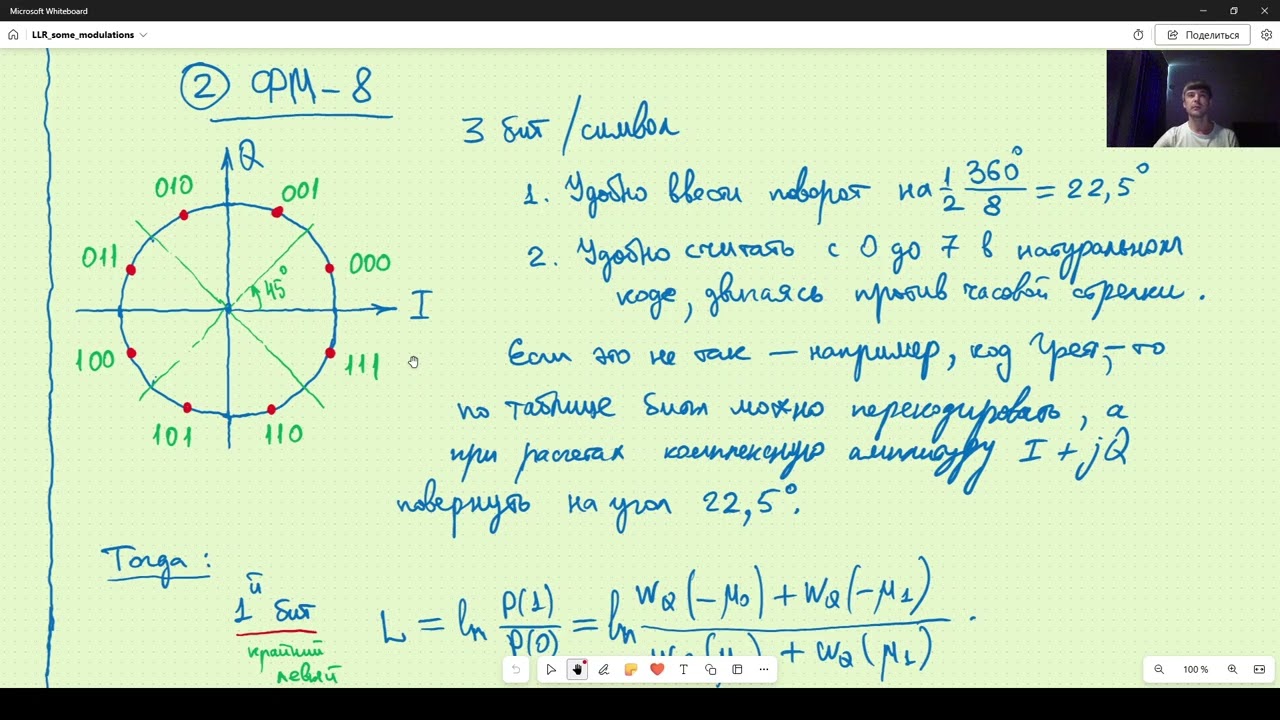 Microsoft Whiteboard
LLR_some_modulations
Поделиться
2 ФМ-8
3 бит/символ
1. Удобно ввести поворот на 1/2 360°/8 = 22,5°
2. Удобно считать с 0 до 7 в натуральном
коде, двигаясь против часовой стрелки.
Если это не так — например, код Грея, — то
по таблице биты можно перекодировать, а
при расчетах комплексную амплитуду I + jQ
повернуть на угол 22,5°.
Q
010
001
011
000
45°
I
100
111
101
110
Тогда:
1й бит
крайний
левый
L = ln P(1)/P(0) = ln W_Q(-μ₀) + W_Q(-μ₁)
W_Q(μ₀) + W_Q(μ₁)
T
100 %